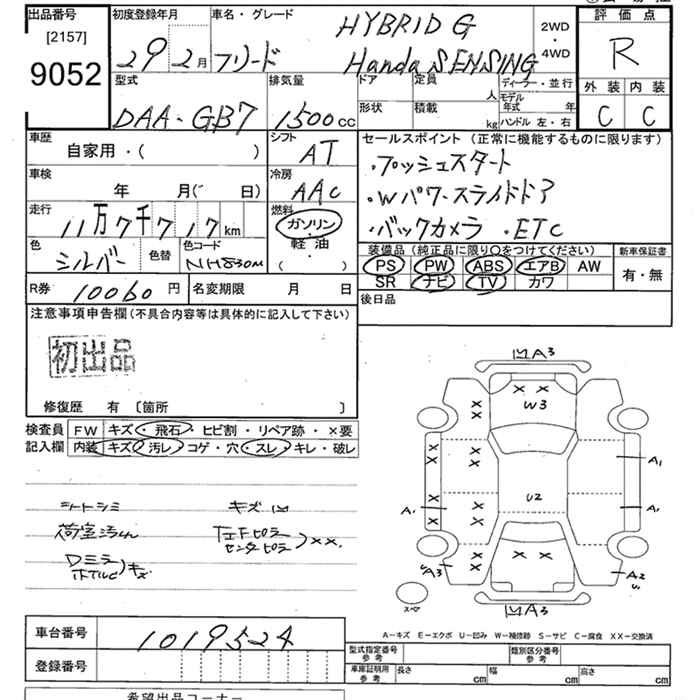 出品番号 初度登録年月 車名・グレード HYBRID G 2WD・4WD 評価点
[2157]
9052 29 2月 フリード Honda SENSING R
型式 排気量 ドア 定員 人 ディーラー・並行 外装 内装
DAA-GB7 1500cc 形状 積載 kg モデル年式 年 ハンドル 左・右 C C
車歴 シフト セールスポイント (正常に機能するものに限ります)
自家用・( ) AT ・プッシュスタート
車検 年 月( 日) 冷房 AAC ・Wパワースライドドア
走行 11万7千717km 燃料 ガソリン・軽油・( ) ・バックカメラ ・ETC
色 シルバー 色替 色コード NH830M 装備品(純正品に限り○をつけてください) 新車保証書
PS PW ABS エアB AW 有・無
SR ナビ TV カワ
R券 10060円 名変期限 月 日 後日品
注意事項申告欄(不具合内容等は具体的に記入して下さい)
初出品
修復歴 有 〔箇所 〕
検査員 FW キズ・飛石・ヒビ割・リペア跡・×要
記入欄 内装 キズ・汚レ・コゲ・穴・スレ・キレ・破レ
シートシミ キズ凹
荷室汚れ
センターピラ ××.
キズ
A3
× ×
W3
× ×
× ×
A1
U2
A1
× ×
A3 A2
スペア
A3
A-キズ E-エクボ U-凹み W-補修跡 S-サビ C-腐食 XX-交換済
車台番号 1019524
型式指定番号 参考 類別区分番号 参考
登録番号 車庫証明用 参考 長さ cm 幅 cm 高さ cm
希望出品コーナー